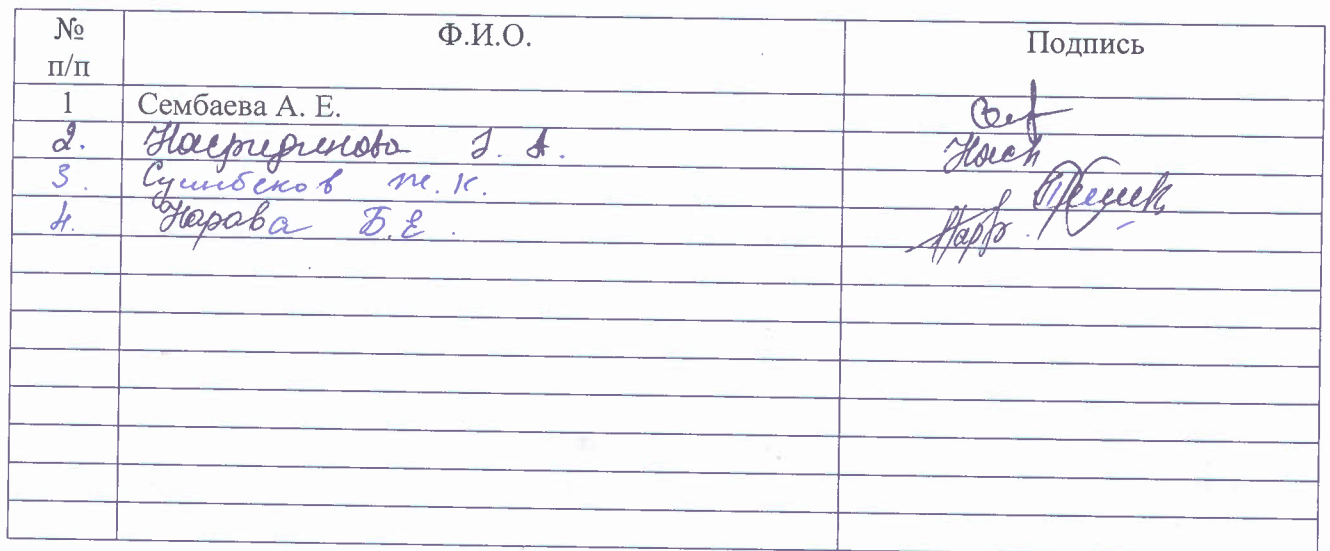 № п/п Ф.И.О. Подпись
1 Сембаева А. Е.
2. Насридинова З. А. Насн
3. Сушбеков Т. К.
4. Нарова Б. Е.